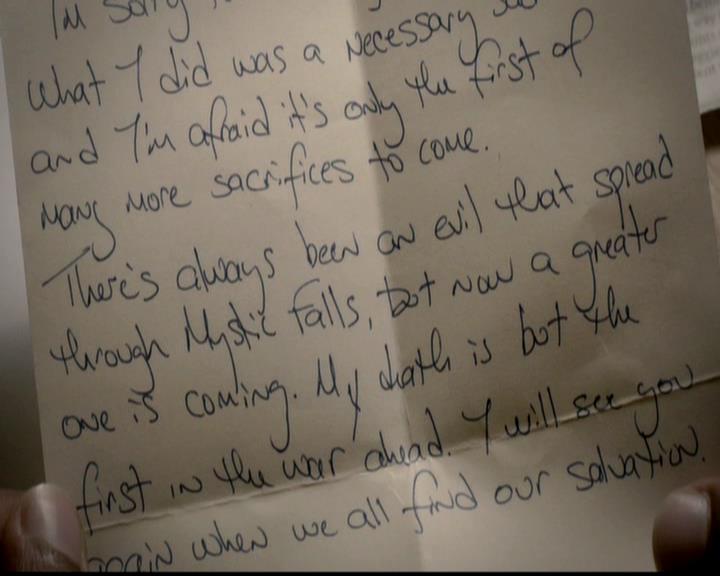 I'm sorry
What I did was a necessary
and I'm afraid it's only the first of
many more sacrifices to come.
There's always been an evil that spread
through Mystic Falls, but now a greater
one is coming. My death is but the
first in the war ahead. I will see you
again when we all find our salvation.